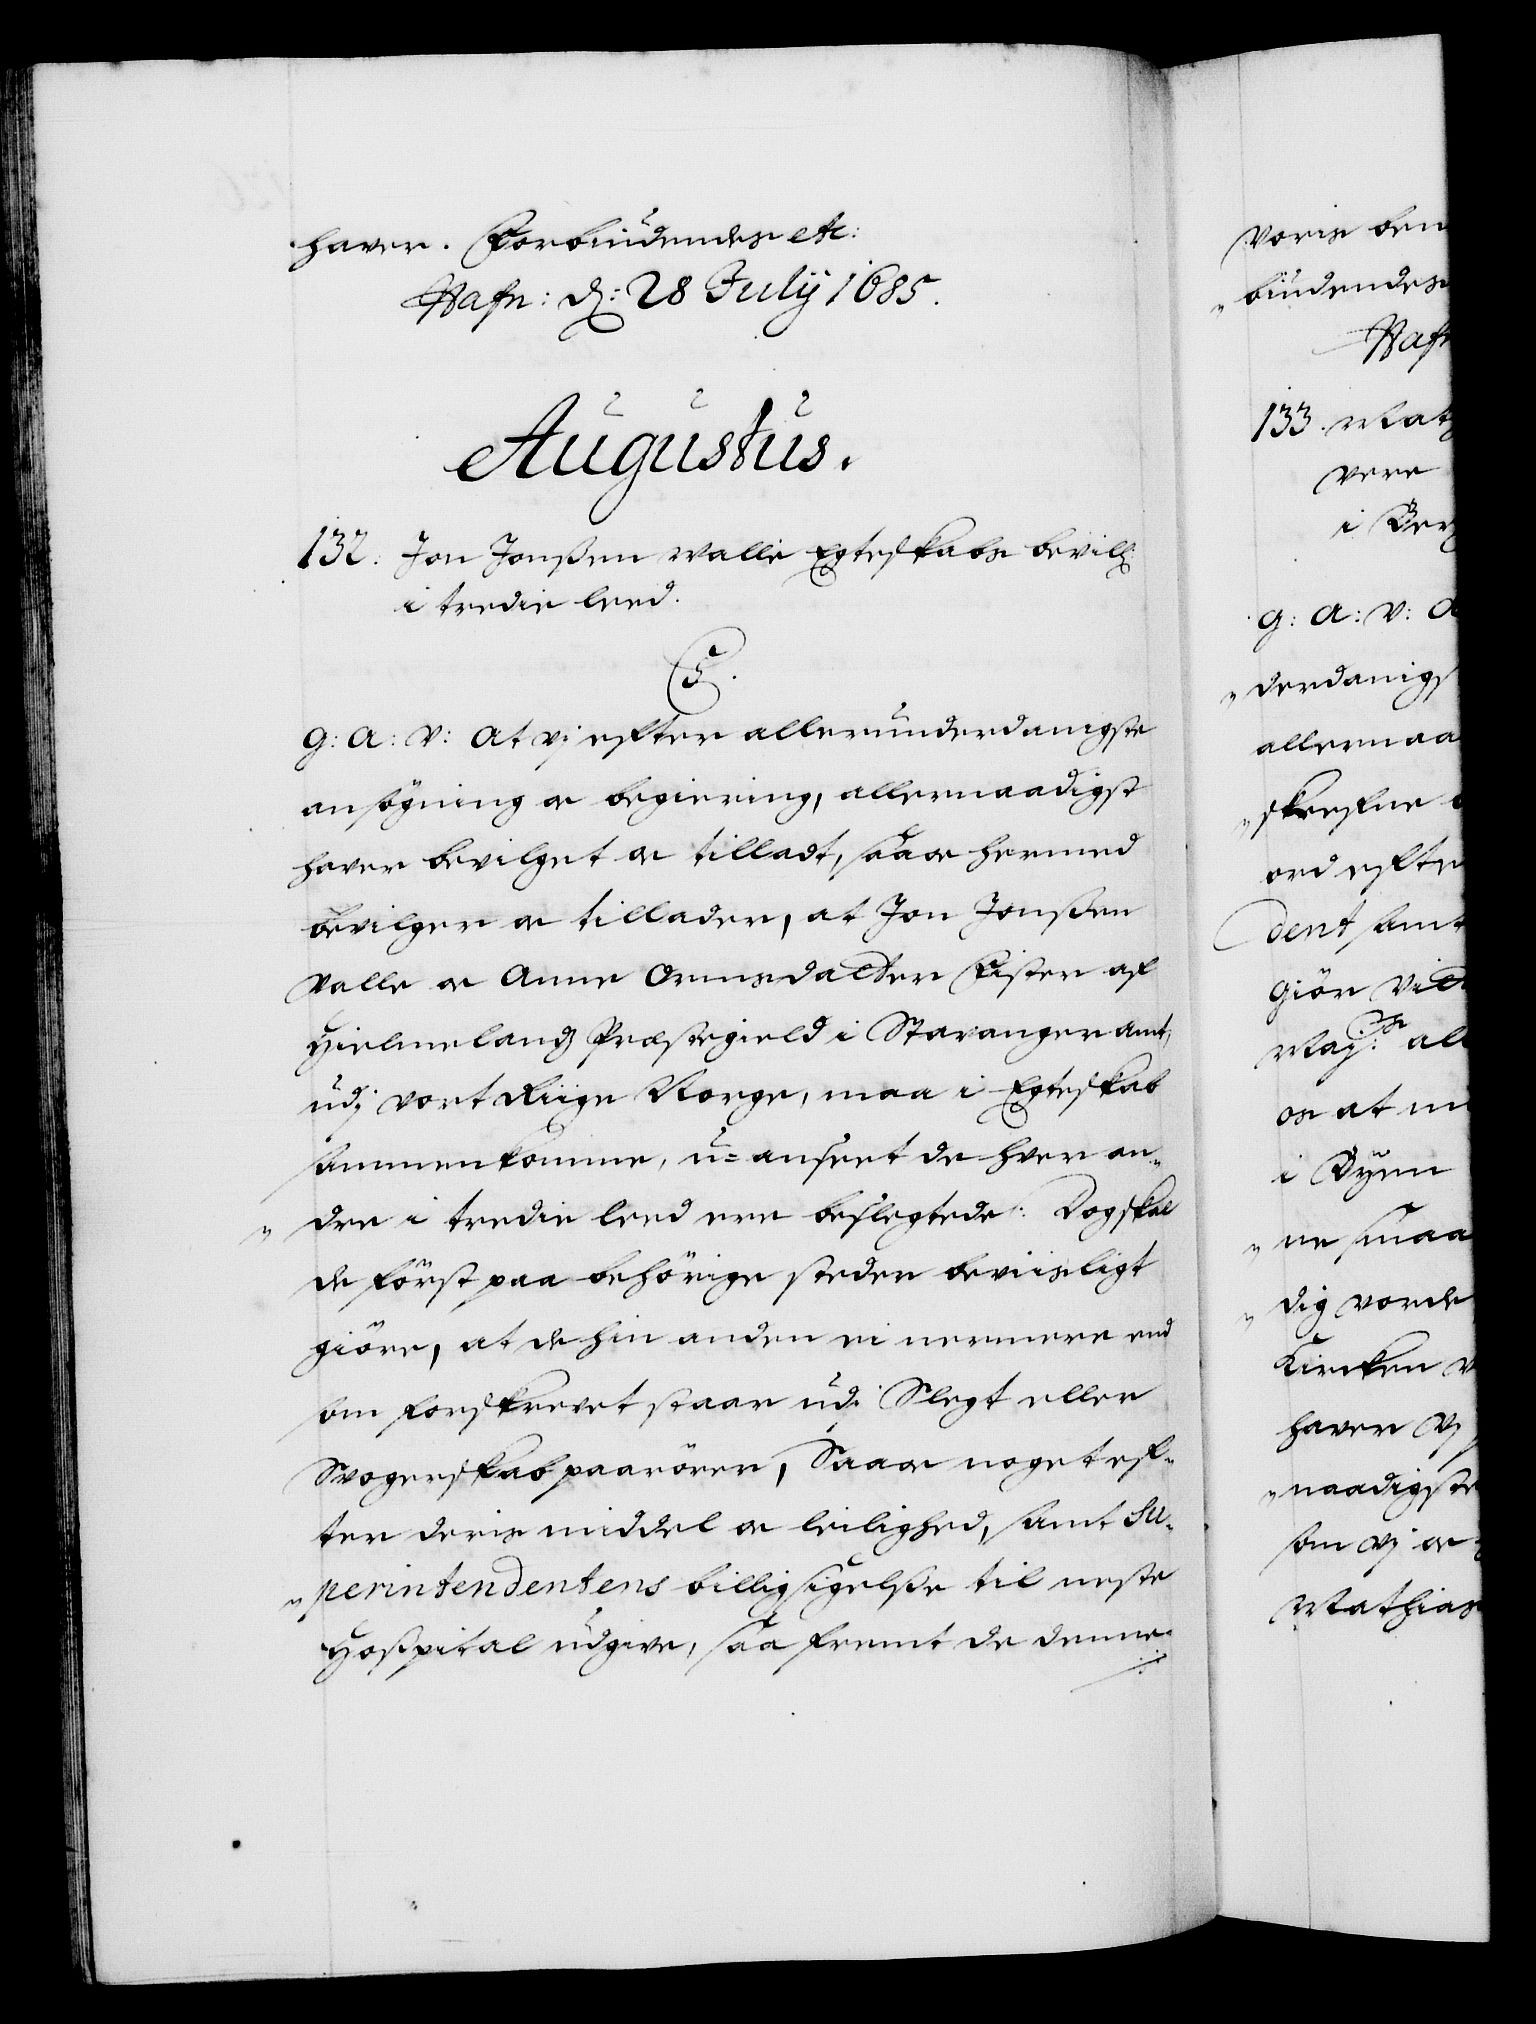 hafver. Forbiudendes etc:
Hafn: d: 28 Julÿ 1685.
Augustus.
132. Jon Jonssen Walle Egteskabs bevill:
i tredie leed.
C5.
G: A: V: At vj efter allerunderdanigste
ansögning oc begiering, allernaadigst
hafver bevilget oc tilladt, saa oc hermed
bevilger oc tillader, at Jon Jonssen
Valle oc Anne Ormsdaatter Fister af
Hielmelands Præstegield i Stavanger amt,
udj vort Riige Norge, maa i Egteskab
sammenkomme, u=anseet de hver an„
„dre i tredie leed ere beslegtede: Dog skal
de först paa behörige steder beviisligt
giöre, at de hin anden ei nermere end
som forskrevet staar udi Slegt eller
Svogerskab paarörer, Saa oc noget ef„
ter deris middel oc leilighed, samt Su„
„perintendentens billigsigelse til neste
Hospital udgive, saa fremt de denne
voris ben
„biudendes
Hafn
133. Mat
vere
i Ber
G: A: V: A
„derdanigs
allernaa
„skrefne
ord efter
dent samt
giör vit
May:ts all
os at m
i Byen
„ne smaa
„dig vorde
Kircken
hafver vj
„naadigste
som vj oc
Mathias